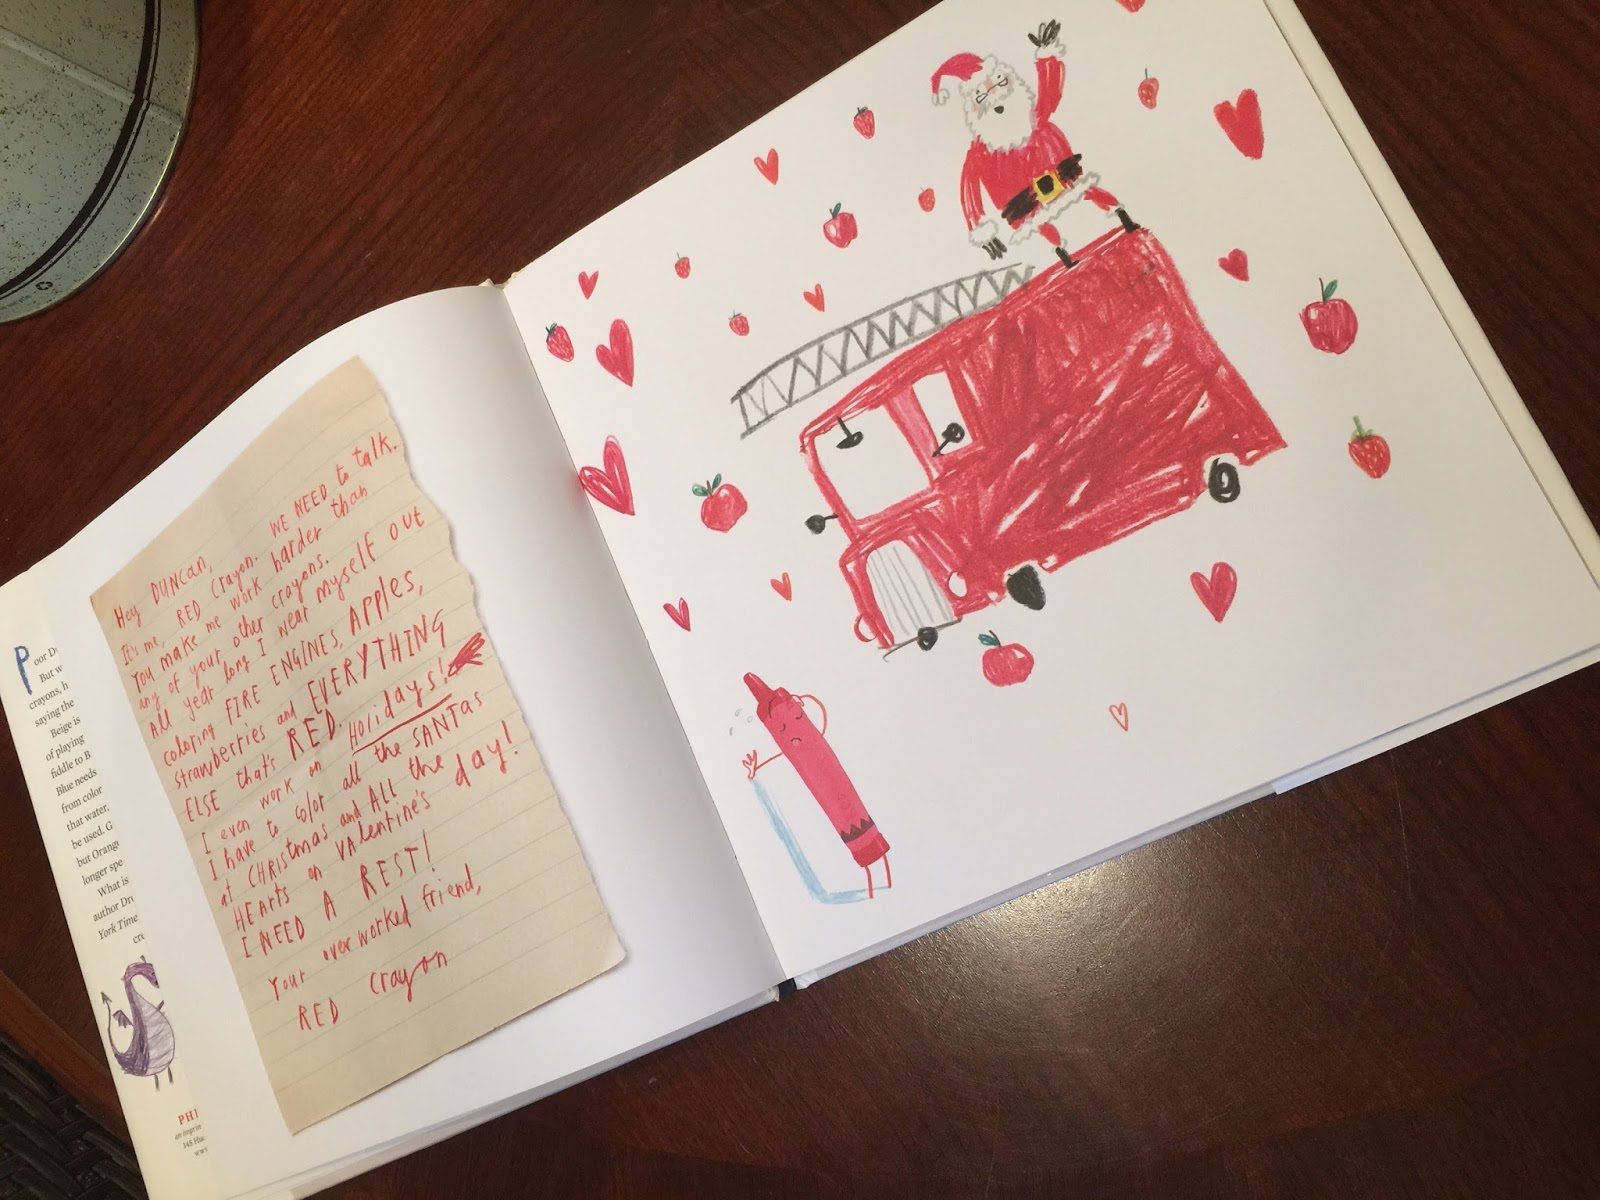 Poor D
But w
crayons, h
saying the
Beige is
of playing
fiddle to B
Blue needs
from color
that water,
be used. G
but Orang
longer spe
What is
author Dre
York Time
cre
PHI
an imprin
345 Hu
ww
Hey DUNCAN,
It's me, RED Crayon. WE NEED to talk.
You make me work harder than
any of your other crayons.
All year long I wear myself out
coloring FIRE ENGINES, APPLES,
strawberries and EVERYTHING
ELSE that's RED.
I even work on Holidays!
I have to color all the SANTAs
at CHRistmas and ALL the
HEArts on VAlentine's day!
I NEED A REST!
Your overworked friend,
RED crayon